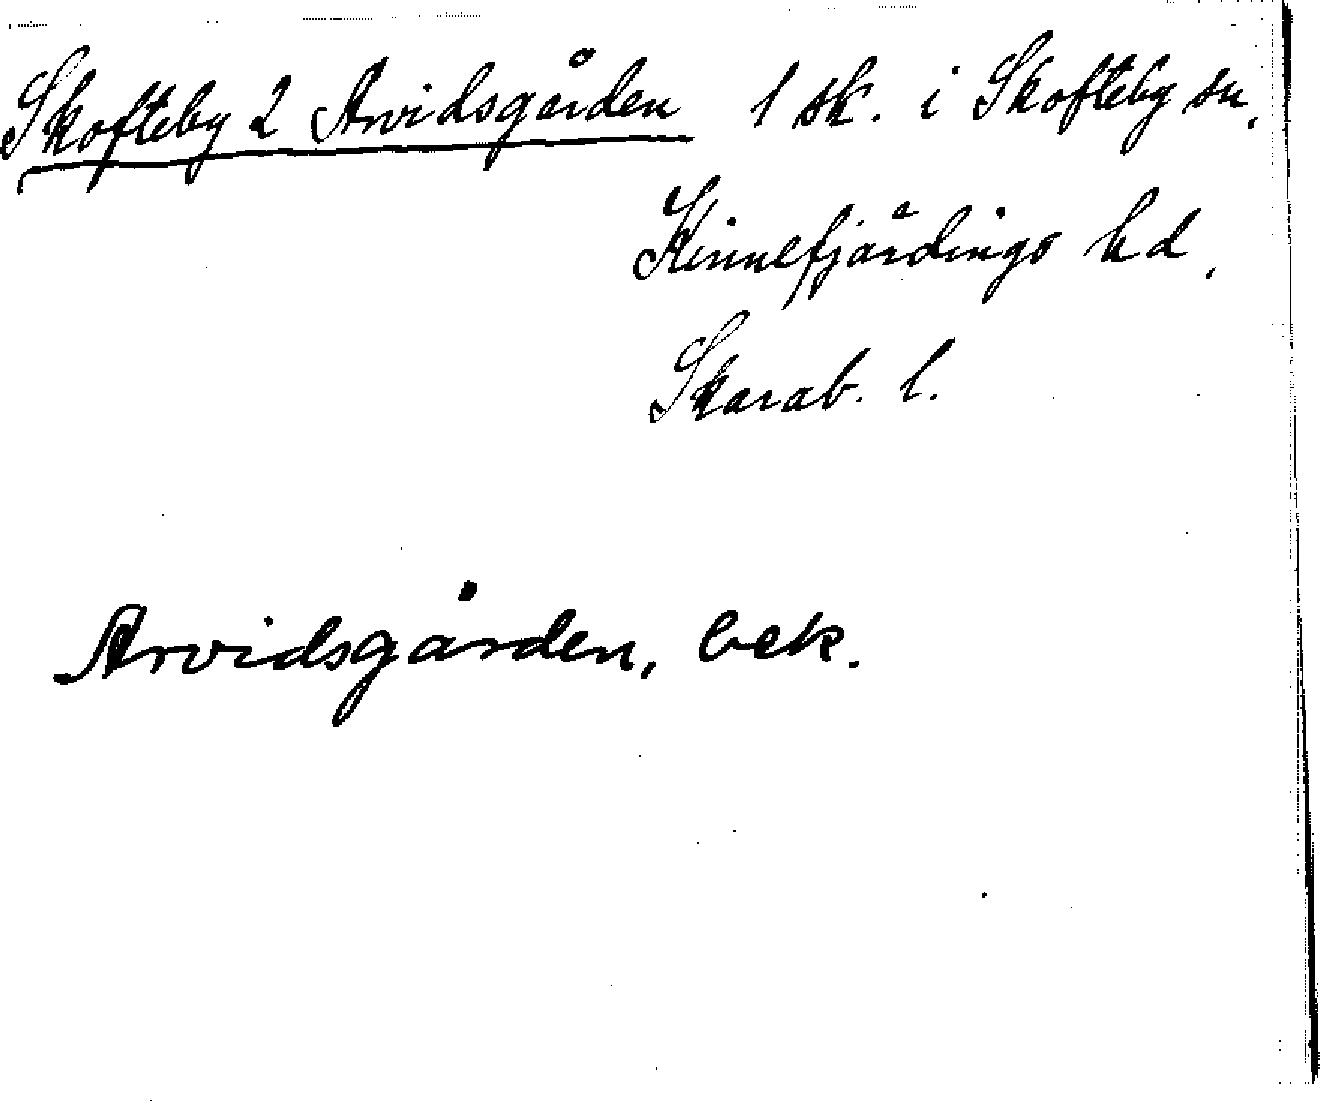 Skofteby 2 Arvidsgården 1 sk. i Skofteby sn.
Kinnefjärdings hd.
Skarab. l.
Arvidsgården, bek.